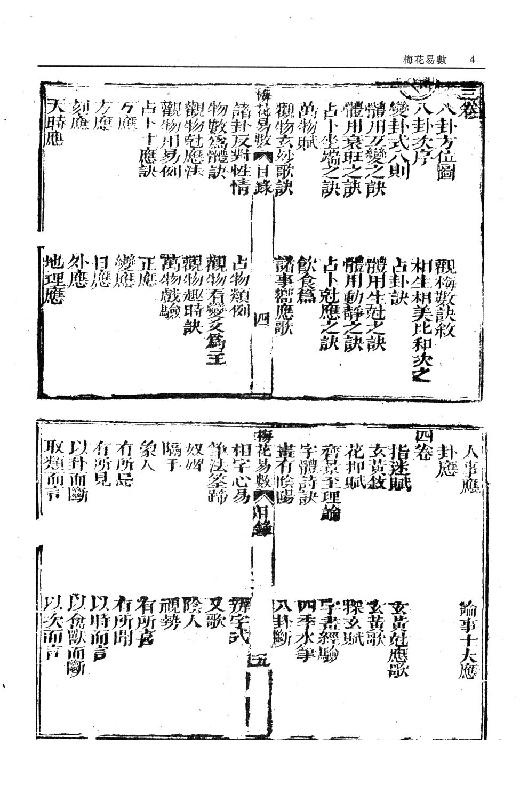 梅花易數 4
三卷
八卦方位圖
八卦次序 觀梅數訣敘
變卦式八則 相生相美比和次之
體用互變之訣 占卦訣
體用衰旺之訣 體用生尅之訣
占卜坐端之訣 體用動靜之訣
萬物賦 占卜尅應之訣
觀物玄妙歌訣 飲食篇
諸事響應歌
梅花易數 目錄 四
諸卦反對性情 占物類例
物數為體訣 觀物看變爻為主
觀物尅應法 觀物趣時訣
觀物用易例 萬物戲驗
占卜十應訣 正應
互應 變應
方應 日應
刻應 外應
天時應 地理應
人事應 論事十大應
卦應
四卷
指迷賦 玄黃尅應歌
玄黃敘 玄黃歌
花押賦 探玄賦
齊景至理論 字畫經驗
字體詩訣 四季水筆
畫有陰陽 八卦斷
梅花易數 目錄 五
相字心易 辨字式
筆法筌蹄 又歌
奴婢 陰人
隔手 視勢
象人 有所喜
有所見 有所聞
以卦而斷 以時而言
取類而言 以禽獸而斷
以次而言